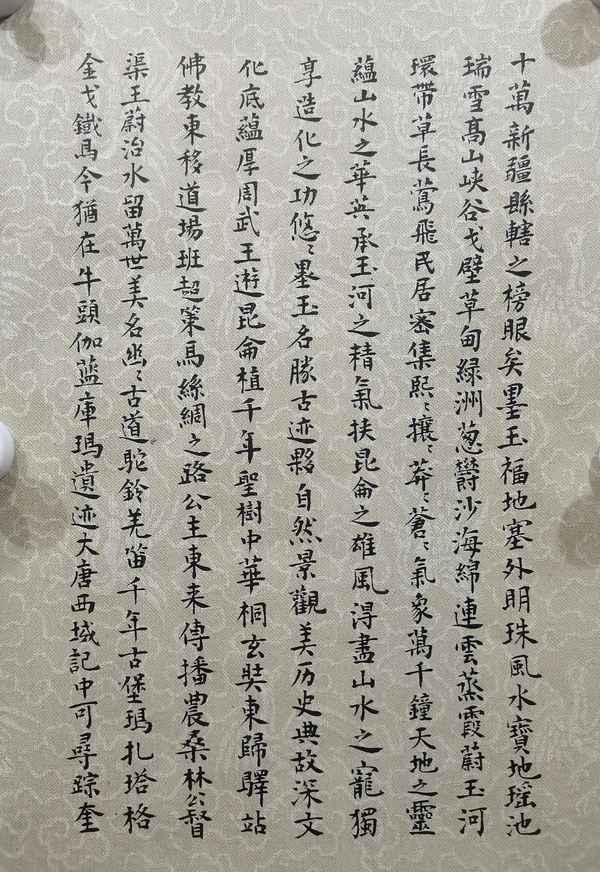 十萬新疆縣轄之榜眼矣墨玉福地塞外明珠風水寶地瑶池
瑞雪高山峡谷戈壁草甸緑洲葱欝沙海綿連雲蒸霞蔚玉河
環帶草長鶯飛民居密集熙〻攘〻莽〻蒼〻氣象萬千鐘天地之靈
蘊山水之華英承玉河之精氣扶昆侖之雄風淂盡山水之寵獨
享造化之功悠〻墨玉名勝古迹夥自然景觀美历史典故深文
化底蘊厚周武王遊昆侖植千年聖樹中華桐玄奘東歸驛站
佛教東移道場班超策馬絲綢之路公主東来傳播農桑林公督
渠王蔚治水留萬世美名幽〻古道駝鈴羌笛千年古堡瑪扎塔格
金戈鐵馬今猶在牛頭伽藍庫瑪遺迹大唐西域記中可尋踪奎